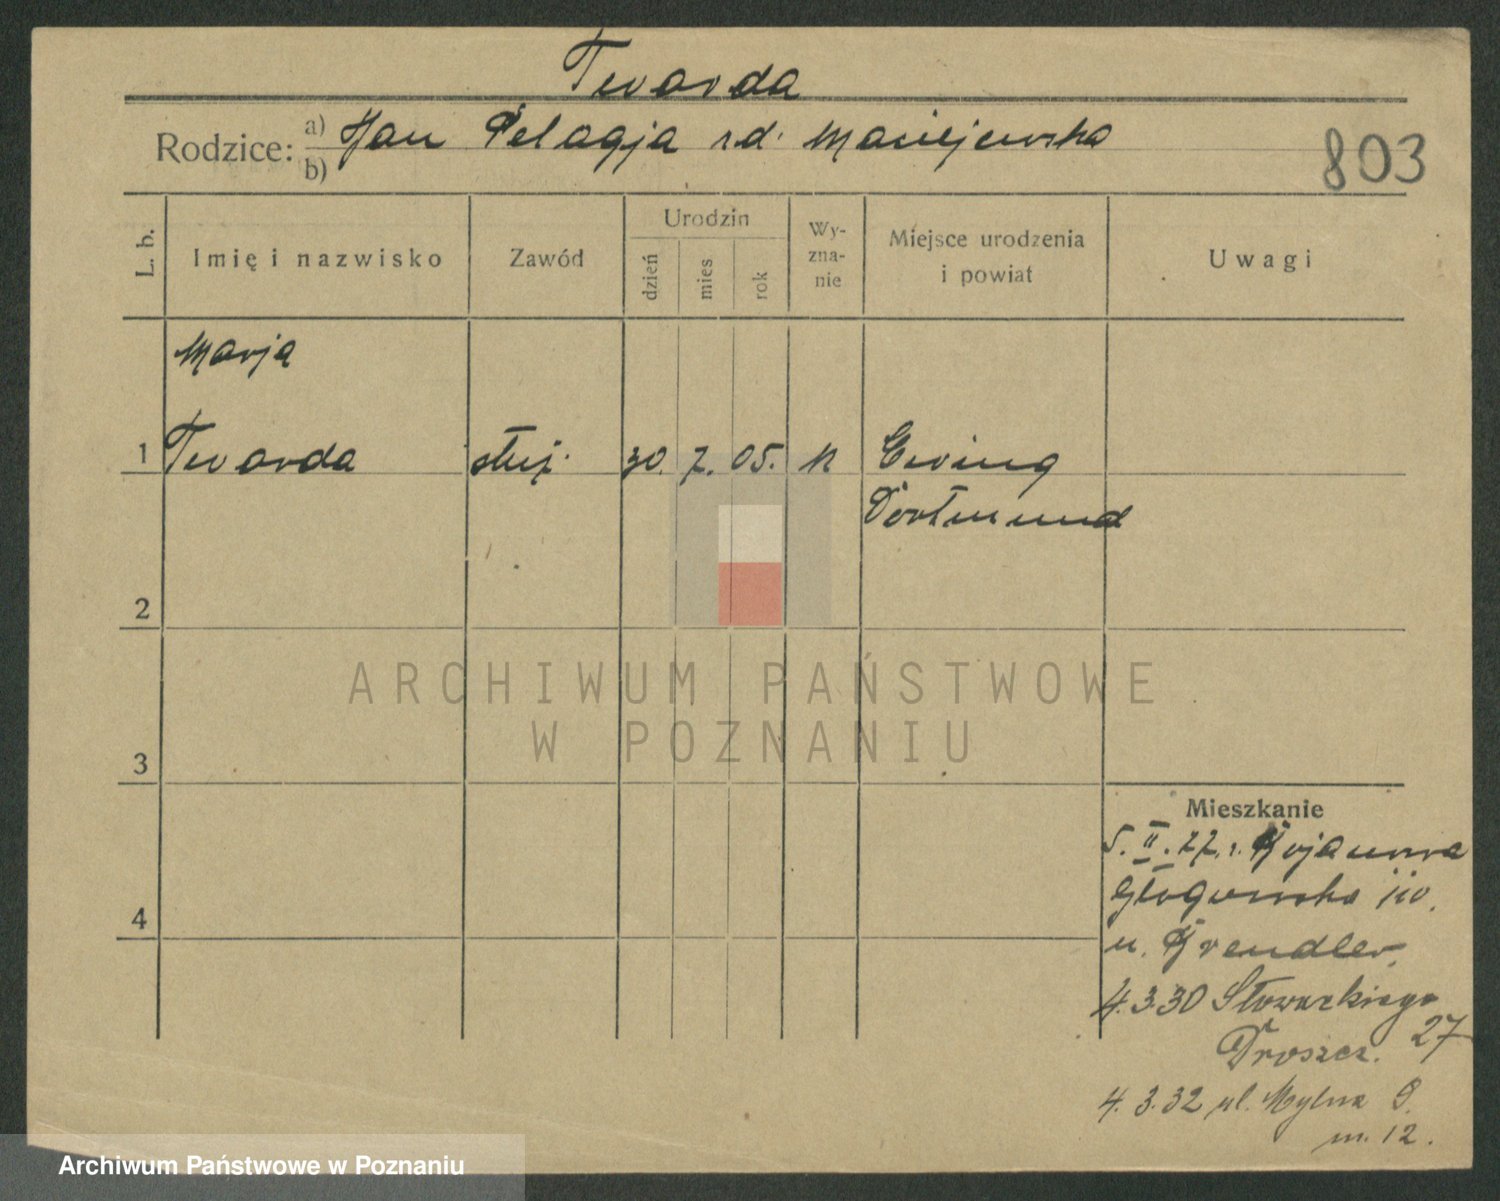 Twarda
Rodzice: a) Jan Pelagja z d. Maciejewska
b)
803
L. b.
Imię i nazwisko
Zawód
Urodzin
dzień
mies
rok
Wy-
zna-
nie
Miejsce urodzenia
i powiat
Uwagi
Marja
1 Twarda służ. 30. 7. 05. k Eving
Dortmund
2
3
4
ARCHIWUM PAŃSTWOWE
W POZNANIU
Mieszkanie
5. II. 27. z Bojanowa
Głogowska
u. Brendler
4.3.30 Słowackiego
27
Droszcz.
4. 3. 32 ul. Mylna 9.
m. 12.
Archiwum Państwowe w Poznaniu